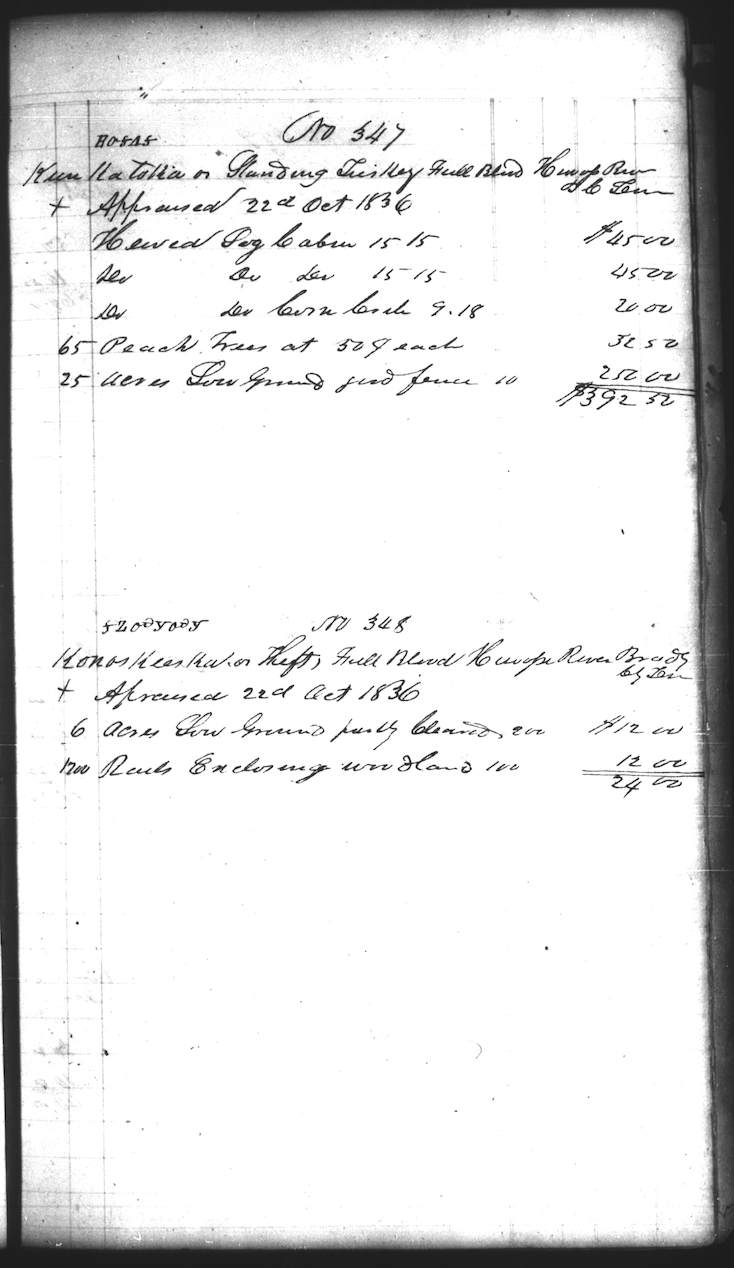 No 347
Kun Ka toka or Standing Turkey Full Blood Hiwope River
B C Ten
+ Appraised 22d Oct 1836
Hewed Log Cabin 15 15 $45 00
Do Do Do 15-15 45 00
Do Do Corn Crib 9.18 20 00
65 Peach Trees at 50 ¢ each 32 50
25 acres Low Ground good fence 10 250 00
$392 50
No 348
Konos Kees Ka or Theft, Full Blood Hiwope River Bradly
Cty Ten
+ Apraised 22d Oct 1836
6 acres Low Ground partly Cleared, 200 $12 00
1200 Rails Enclosing woodland 100 12 00
24 00